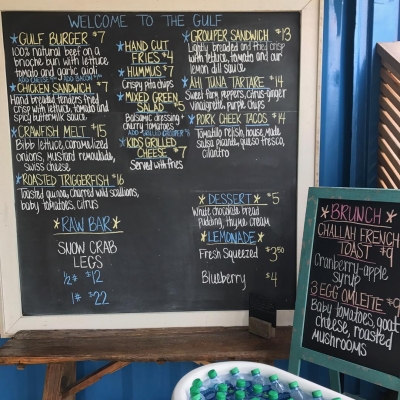 WELCOME TO THE GULF
GULF BURGER $7
100% natural beef on a
brioche bun with lettuce
tomato and garlic aioli
ADD CHEESE ADD BACON
CHICKEN SANDWICH $7
Hand breaded tenders fried
crisp with lettuce, tomato and
spicy buttermilk sauce
CRAWFISH MELT $15
Bibb lettuce, caramelized
onions, mustard remoulade,
swiss cheese
ROASTED TRIGGERFISH $16
Toasted quinoa, charred wild scallions,
baby tomatoes, citrus
RAW BAR
SNOW CRAB
LEGS
1/2# $12
1# $22
HAND CUT
FRIES $4
HUMMUS $7
Crispy pita chips
MIXED GREEN
SALAD $5
Balsamic dressing +
cherry tomatoes
ADD GRILLED GROUPER
KIDS GRILLED
CHEESE $7
Served with fries
GROUPER SANDWICH $13
Lightly breaded and fried crisp
with lettuce, tomato and our
lemon dill sauce
AHI TUNA TARTARE $14
Sweet farm peppers, citrus-ginger
vinaigrette, purple chips
PORK CHEEK TACOS $14
Tomatillo relish, house made
salsa picante, queso fresco,
cilantro
DESSERT $5
White chocolate bread
pudding, thyme cream
LEMONADE
Fresh Squeezed $3.50
Blueberry $4
BRUNCH
CHALLAH FRENCH
TOAST $9
Cranberry-apple
syrup
3 EGG OMLETTE $9
Baby tomatoes, goat
cheese, roasted
mushrooms